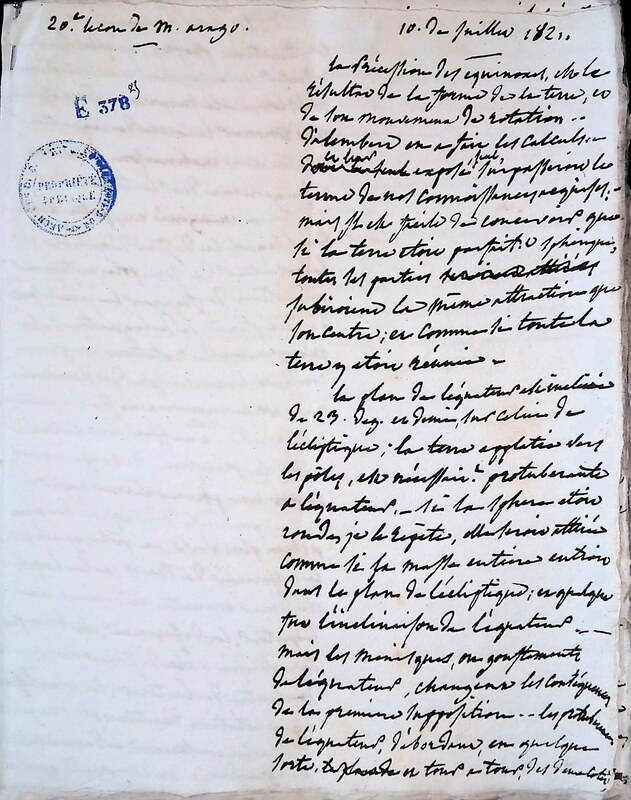 20.e lecon de m. arago.
10. de juillet 182
E 378
PROPRIÉTÉ
PUBLIQUE
la précession des équinoxes, est le
résultat de la forme de la terre, et
de son mouvement de rotation..
d'alembert en a fait les calculs.
exposé surpasserait le
terme de nos connoissances acquises,
mais il est facile de concevoir que
si la terre étoit parfait.t sphérique,
toutes les parties
subiroient la même attraction que
son centre; et comme si toute la
terre y étoit réunie.
le plan de l'équateur est incliné
de 23. deg. et demi, sur celui de
l'écliptique; la terre applatie vers
les pôles, est nécessair.t protuberante
a l'équateur. si la sphere etoit
ronde, je le répète, elle seroit attirée
comme si sa masse entiere entroit
dans le plan de l'écliptique; quelque
fut l'inclinaison de l'équateur.
mais les menisques, ou gonflements
de l'équateur, changent les conséquences
de la premiere supposition.. les
de l'équateur, débordant, en quelque
sorte, et tour a tour, des deux cotés